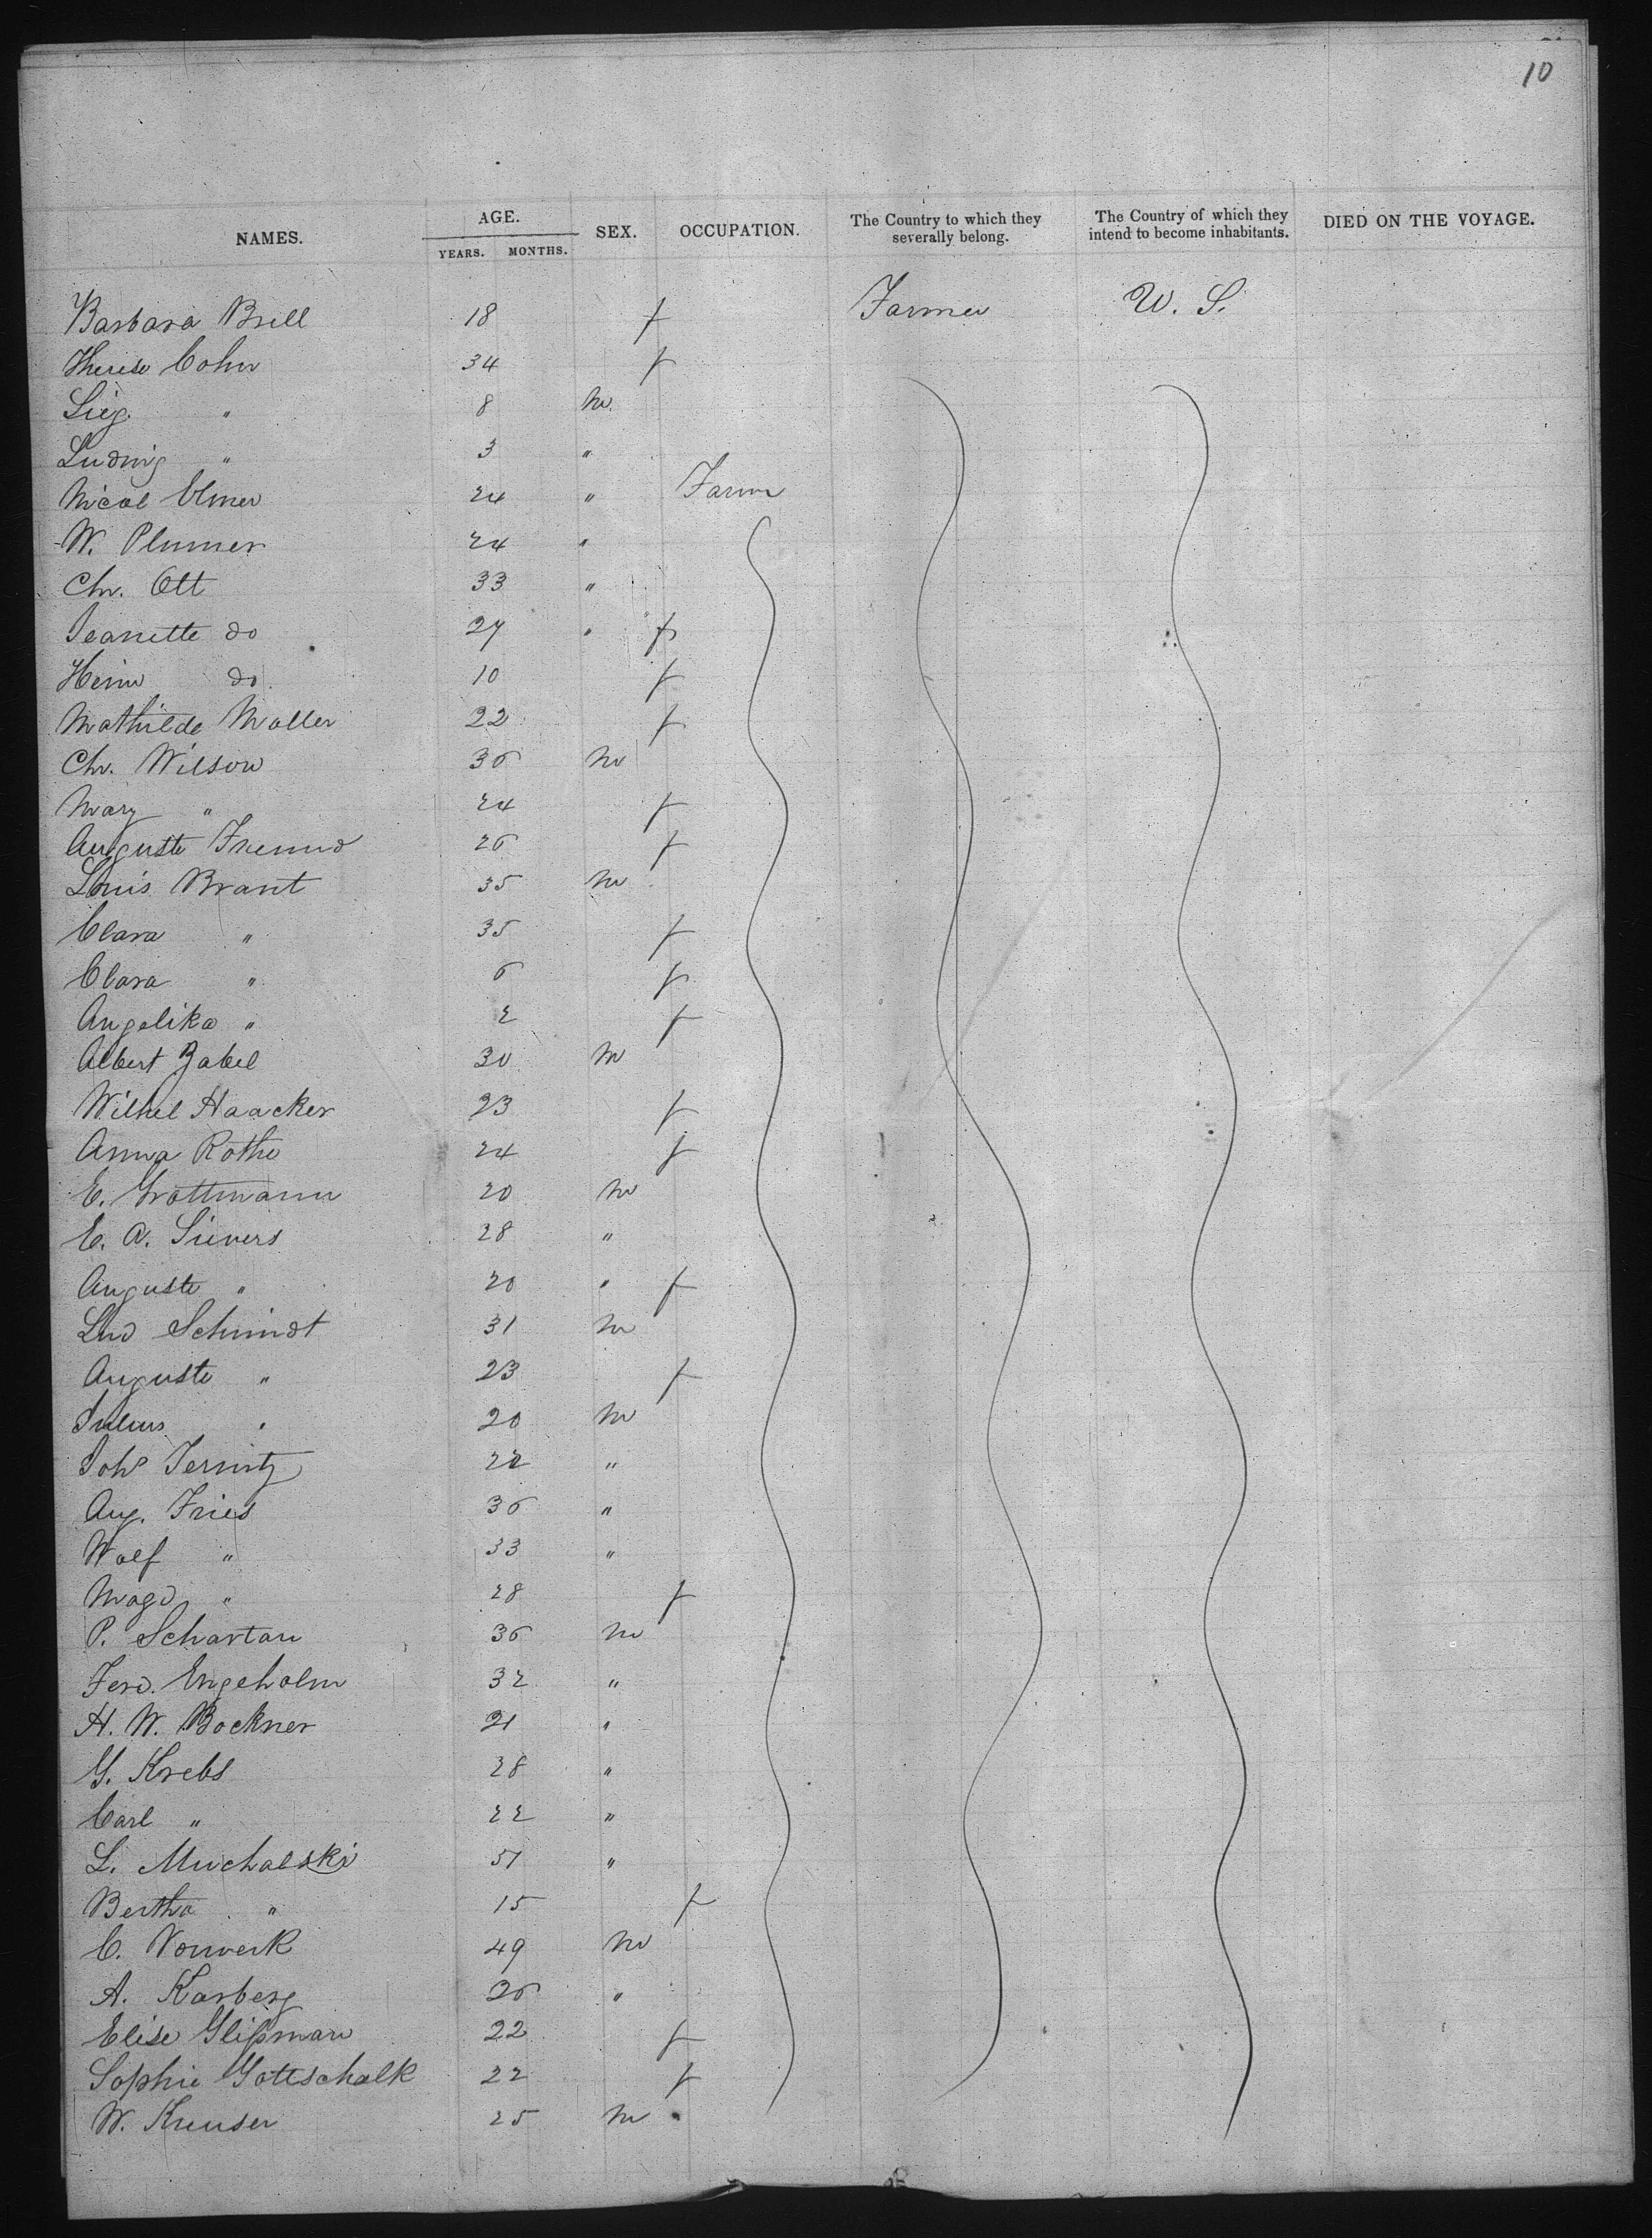 10
NAMES. AGE. YEARS. MONTHS. SEX. OCCUPATION. The Country to which they severally belong. The Country of which they intend to become inhabitants. DIED ON THE VOYAGE.
Barbara Brill 18 f W. S.
Therese Cohn 34 f
Sieg. " 8 m
Ludwig " 3 "
Nicol Elmer 24 " Farmer
W. Plumer 24 "
Chr. Ott 33 "
Jeanette do 27 " f
Heinr do 10 f
Mathilde Moller 22 f
Chr. Wilson 36 m
Mary " 24 f
Auguste Freund 26 f
Louis Brant 35 m
Clara " 35 f
Clara " 6 f
Angelika " 2 f
Albert Zabel 30 m
Wilhel Haacker 23 f
Anna Rothe 24 f
E. Grottmann 20 m
E. A. Sievers 28 "
Auguste " 20 " f
Lud Schmidt 31 m
Auguste " 23 f
Julius " 20 m
Joh 22 "
Aug. Fries 36 "
Wolf " 33 "
Magd " 28 f
P. Schartau 36 m
Ferd. Engeholm 32 "
H. W. Bockner 21 "
G. Krebs 28 "
Carl " 22 "
L. Muchalski 51 "
Bertha " 15 f
C. Vorwerk 49 m
A. Karberg 26 "
Elise Glißman 22 f
Sophie Gottschalk 22 f
W. Kreuser 25 m